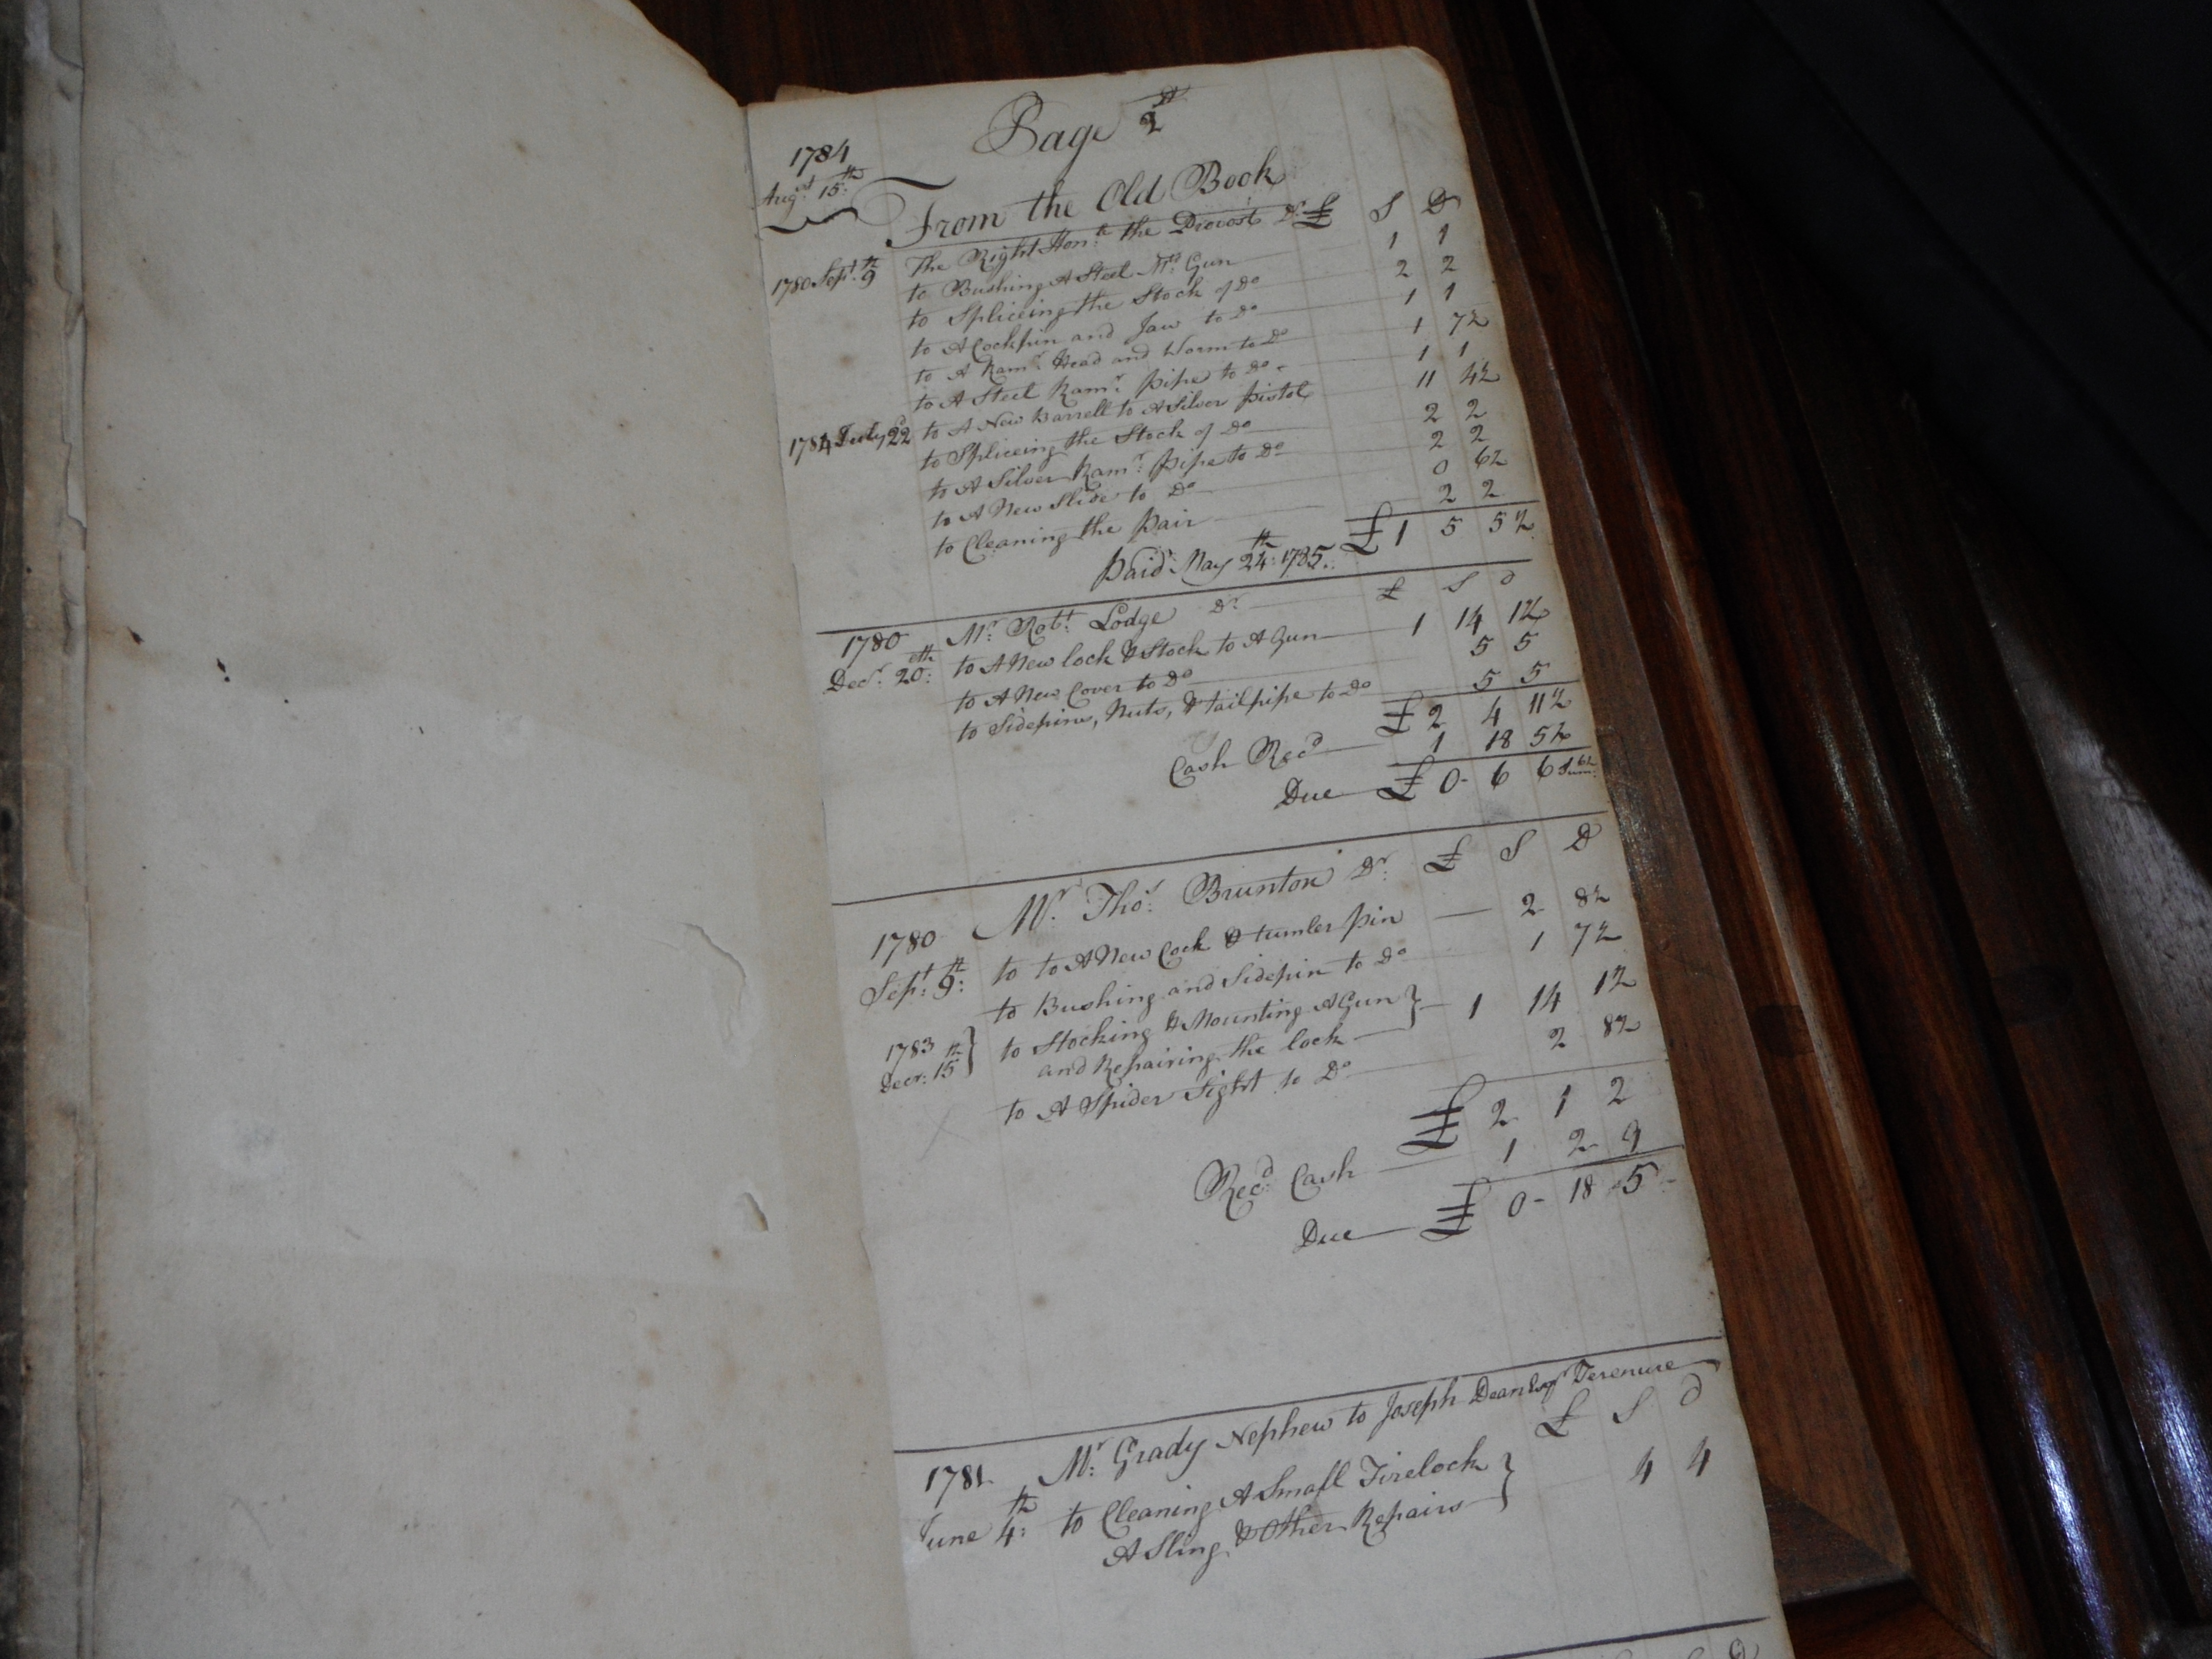 Page 2d
1784
Augst 15th
From the Old Book
The Right Honle the Provost Dr £ S D
1780 Sept 9th to Bushing A Steel Md Gun 1 1
to Spliceing the Stock of Do 2 2
to A Cockpin and Jaw to Do 1 1
to A Ramr Head and Worm to Do 1 7½
to A Steel Ramr pipe to Do 1 1
1784 July 22d to A New Barrell to A Silver pistol 11 4½
to Spliceing the Stock of Do 2 2
to A Silver Ramr pipe to Do 2 2
to A New Slide to Do 0 6½
to Cleaning the pair 2 2
£ 1 5 5½
paid May 24th: 1785
1780 Mr. Robt Lodge Dr £ S d
Decr. 20eth: to A New lock & Stock to A Gun 1 14 1½
to A New Cover to Do 5 5
to Sidepins, Nuts, & tailpipe to Do 5 5
£ 2 4 11½
Cash Recd 1 18 5½
Due £ 0 - 6 6
Mr. Thos. Brunton Dr. £ S D
1780
Sept. 9th: to to A New Cock & tumler pin 2 8½
to Bushing and Sidepin to Do 1 7½
1783
Decr. 15th } to Stocking & Mounting A Gun } 1 14 1½
and Repairing the lock
to A Spider Sight to Do 2 8½
£ 2 1 2
Recd. Cash 1 2 9
Due £ 0 - 18 5 -
Mr. Grady Nephew to Joseph Dean Esqr Terenure
1781 £ S d
June 4th: to Cleaning A Small Firelock } 4 4
A Sling & Other Repairs